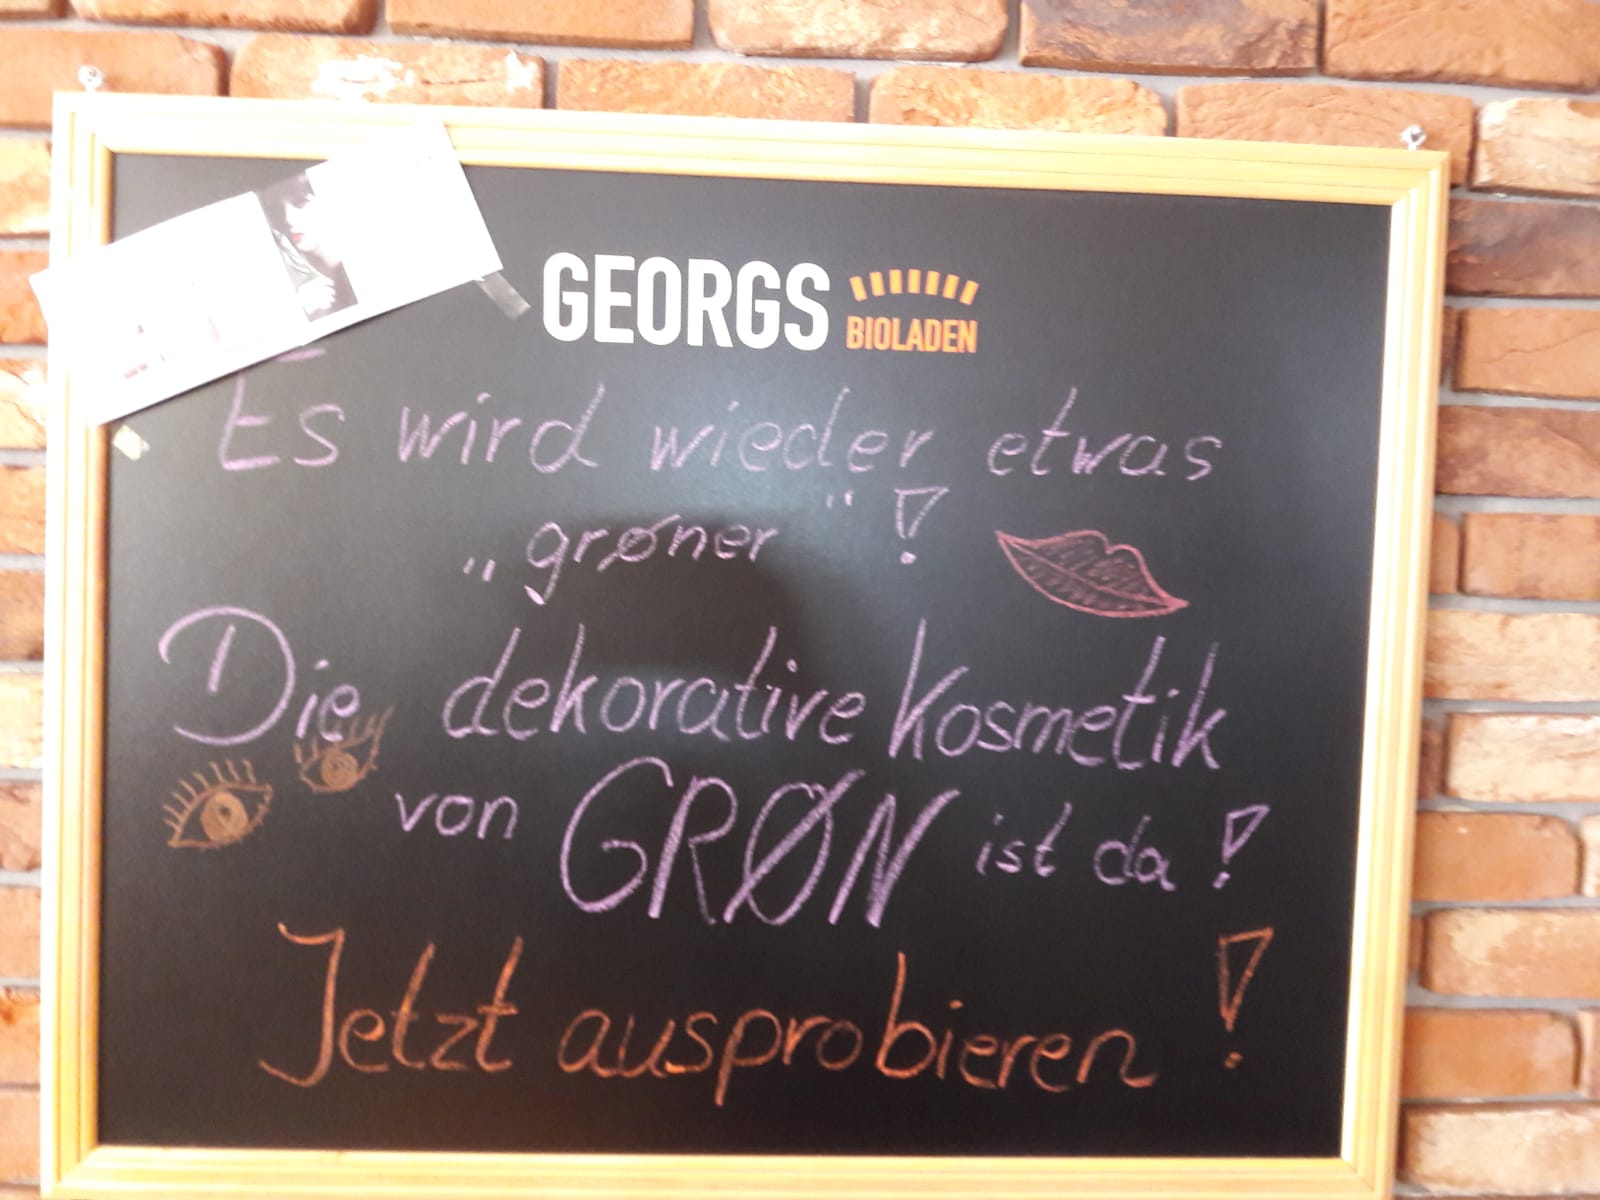 GEORGS BIOLADEN
Es wird wieder etwas
„grøner"!
Die dekorative Kosmetik
von GRØN ist da!
Jetzt ausprobieren!